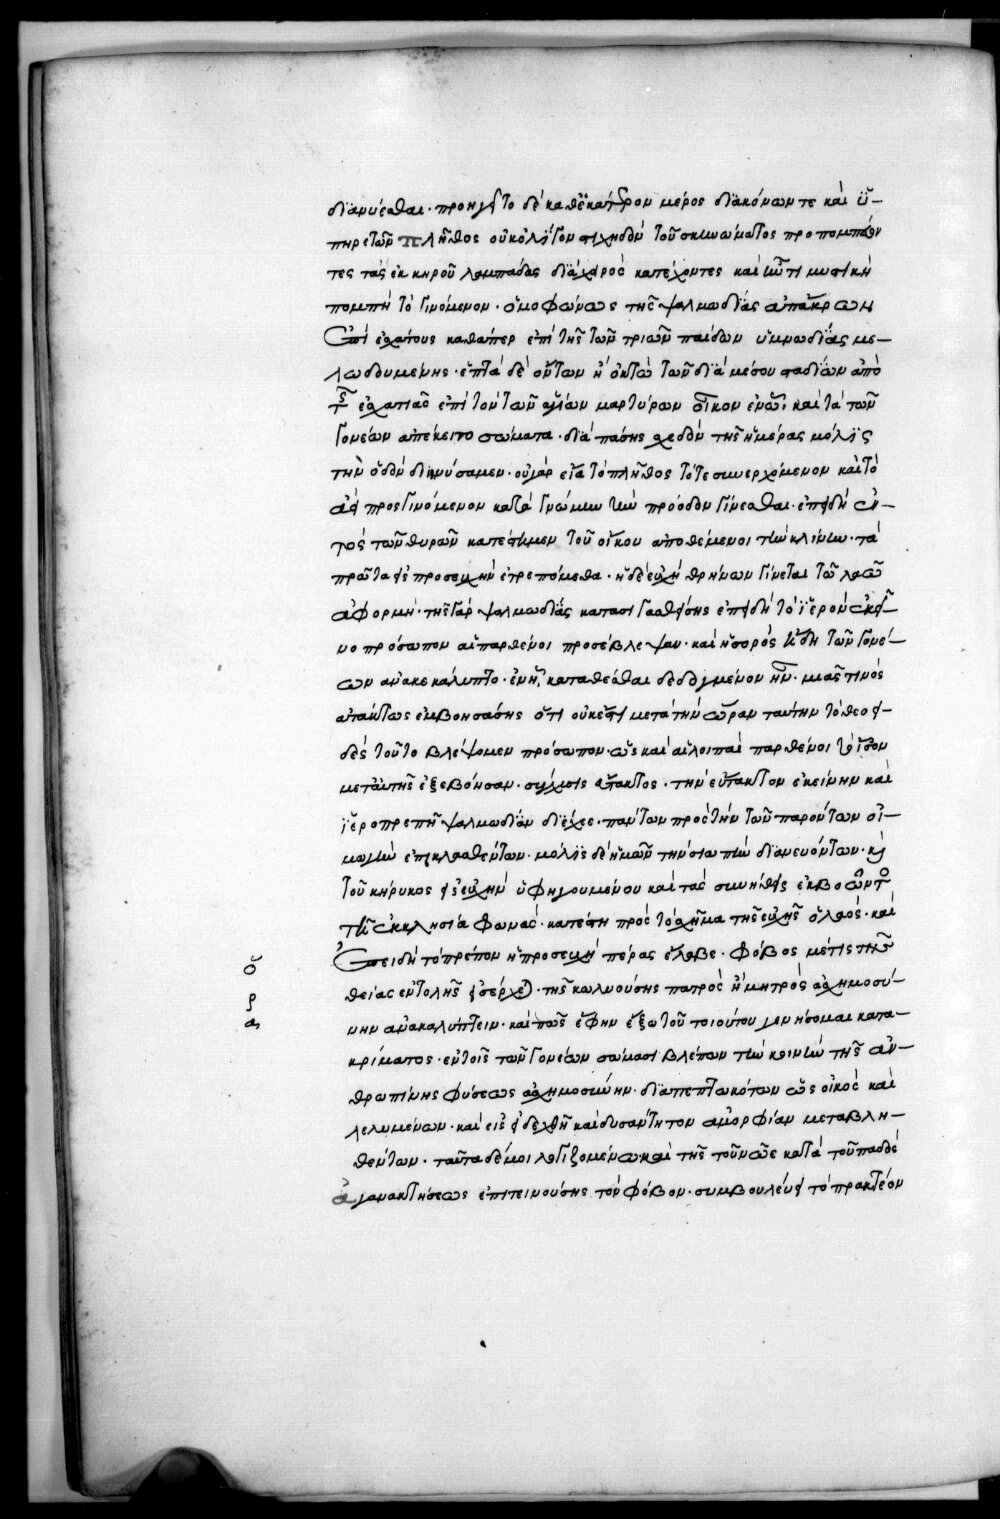 διανύεσθαι· προηγεῖτο δὲ καθ' ἑκάτερον μέρος διακόνων τε καὶ ὑ-
πηρετῶν πλῆθος οὐκ ὀλίγον στιχηδὸν τοῦ σκηνώματος προπομπεῦον
τες τὰς ἐκ κηροῦ λαμπάδας διὰ χειρὸς κατέχοντες καὶ ἦν τι μυστικὴ
πομπὴ τὸ γινόμενον· ὁμοφώνως τῆς ψαλμωδίας ἀπ' ἄκρων
ἐπὶ ἐσχάτους καθάπερ ἐπὶ τῆς τῶν τριῶν παίδων ὑμνωδίας με-
λωδουμένης· ἑπτὰ δὲ ὄντων ἢ ὀκτὼ τῶν διὰ μέσου σταδίων ἀπὸ
τῆς ἐσχατιᾶς ἐπὶ τὸν τῶν ἁγίων μαρτύρων οἶκον ἐν ᾧ καὶ τὰ τῶν
γονέων ἀπέκειτο σώματα· διὰ πάσης σχεδὸν τῆς ἡμέρας μόλις
τὴν ὁδὸν διηνύσαμεν· οὐ γὰρ εἴα τὸ πλῆθος τό τε συνερχόμενον καὶ τὸ
ἀεὶ προσγινόμενον κατὰ γνώμην τὴν πρόοδον γίνεσθαι· ἐπειδὴ ἐν-
τὸς τῶν θυρῶν κατέστημεν τοῦ οἴκου ἀποθέμενοι τὴν κλίνην· τὰ
πρῶτα εἰς προσευχὴν ἐτρεπόμεθα· ἡ δὲ εὐχὴ θρήνων γίνεται τῷ λαῷ
ἀφορμή· τῆς γὰρ ψαλμωδίας κατασιγασθείσης ἐπειδὴ τὸ ἱερὸν ἐκεῖ-
νο πρόσωπον αἱ παρθένοι προσέβλεψαν· καὶ ἡ σορὸς ἤδη τῶν γονέ-
ων ἀνακεκάλυπτο· ἐν ᾗ καταθέσθαι δεδογμένον ἦν· μιᾶς τινὸς
ἀτάκτως ἐμβοησάσης ὅτι οὐκέτι μετὰ τὴν ὥραν ταύτην τὸ θεοει-
δὲς τοῦτο βλέψομεν πρόσωπον· ὡς καὶ αἱ λοιπαὶ παρθένοι τὸ ἴσον
μετ' αὐτῆς ἐξεβόησαν· σύγχυσις ἄτακτος· τὴν εὔτακτον ἐκείνην καὶ
ἱεροπρεπῆ ψαλμωδίαν διέχεε· πάντων πρὸς τὴν τῶν παρόντων οἰ-
μωγὴν ἐπικλασθέντων· μόλις δὲ ἡμῶν τὴν σιωπὴν διανευόντων· κ
τοῦ κήρυκος εἰς εὐχὴν ὑφηγουμένου καὶ τὰς συνήθεις ἐκβοῶντος
τῇ ἐκκλησία φωνάς· κατέστη πρὸς τὸ σχῆμα τῆς εὐχῆς ὁ λαός· καὶ
ἐπειδὴ τὸ πρέπον ἡ προσευχὴ πέρας ἔλαβε· φόβος μέ τις τῆς
θείας ἐντολῆς εἰσέρχεται· τῆς κωλυούσης πατρὸς ἢ μητρὸς ἀσχημοσύ-
νην ἀνακαλύπτειν· καὶ πῶς ἔφην ἔξω τοῦ τοιούτου γενήσομαι κατα-
κρίματος· ἐν τοῖς τῶν γονέων σώμασι βλέπων τὴν κοινὴν τῆς ἀν-
θρωπίνης φύσεως ἀσχημοσύνην· διαπεπτωκότων ὡς εἰκὸς καὶ
λελυμένων· καὶ εἰς εἰδεχθῆ καὶ δυσάντητον ἀμορφίαν μεταβλη-
θέντων· ταῦτα δέ μοι λογιζομένω καὶ τῆς τοῦ νῶε κατὰ τοῦ παιδὸς
ἀγανακτήσεως ἐπιτεινούσης τὸν φόβον· συμβουλεύει τὸ πρακτέον
ὅ
ρ
α